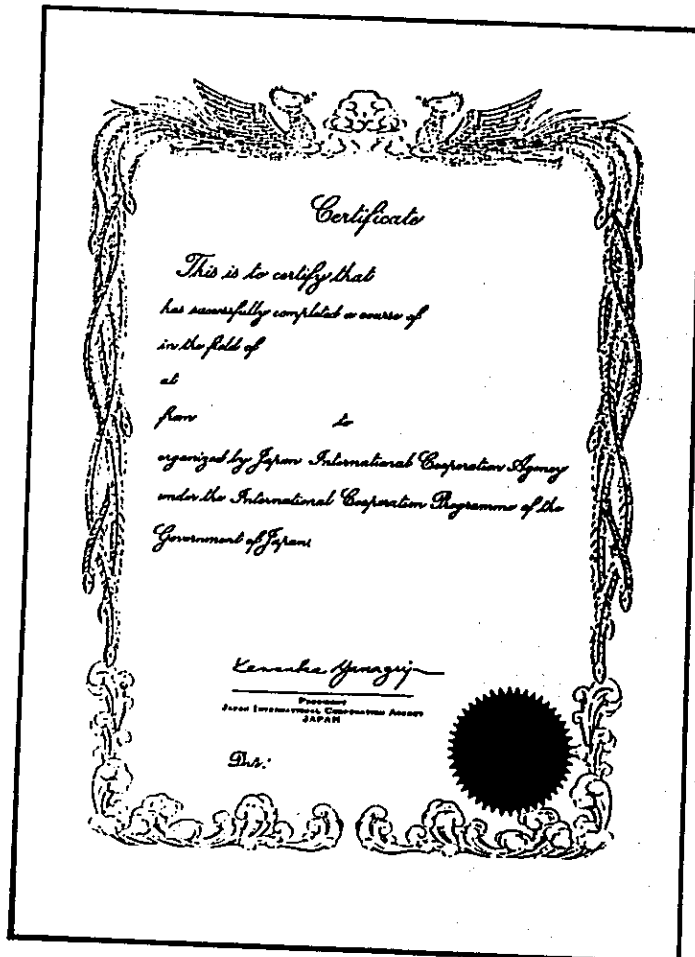 Certificate
This is to certify that
has successfully completed a course of
in the field of
at
from to
organized by Japan International Cooperation Agency
under the International Cooperation Programme of the
Government of Japan
President
Japan International Cooperation Agency
JAPAN
Date: